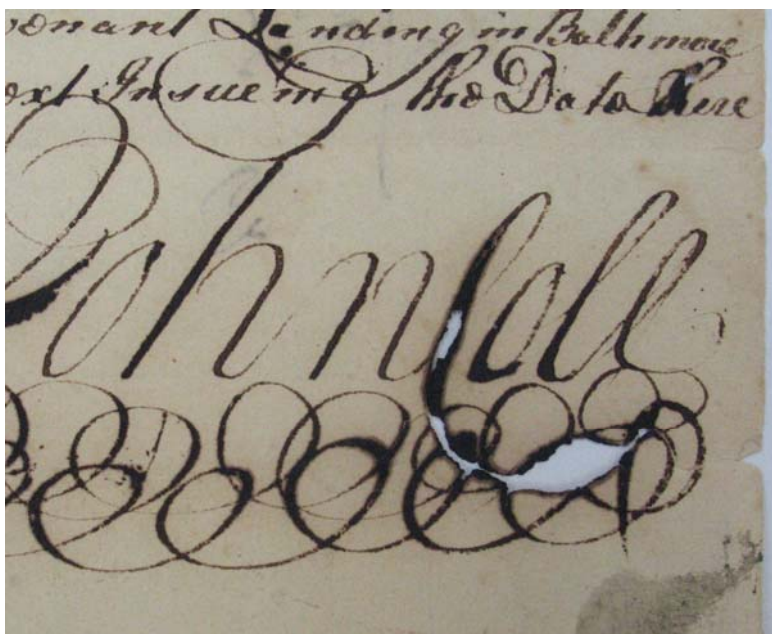 venant Landing in Baltimore
ext Insueing the Date here
John Coll